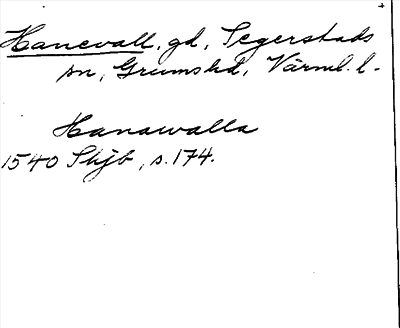 Hanevall, gd, Segerstads
sn, Grums hd, Värml. l.
Hanawalla
1540 Skjb, s. 174.